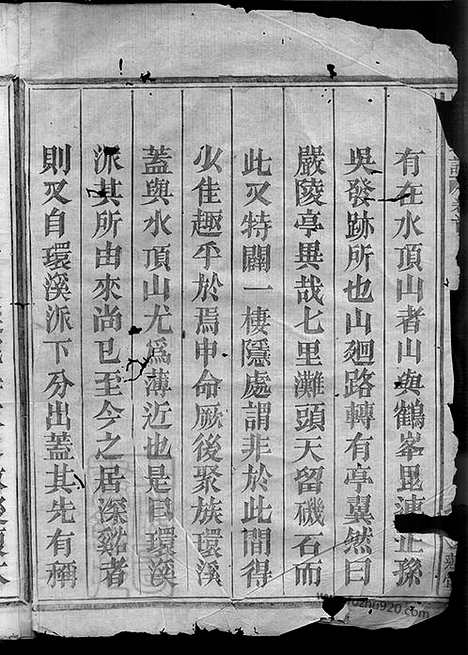 有在水頂山者山與鶴峯毘連正孫
吳發跡所也山廻路轉有亭翼然曰
嚴陵亭異哉七里灘頭天留磯石而
此又特闢一棲隱處謂非於此間得
少佳趣乎於焉申命厥後聚族環溪
蓋與水頂山尤爲薄近也是曰環溪
派其所由來尚已至今之居深谿者
則又自環溪派下分出蓋其先有稱